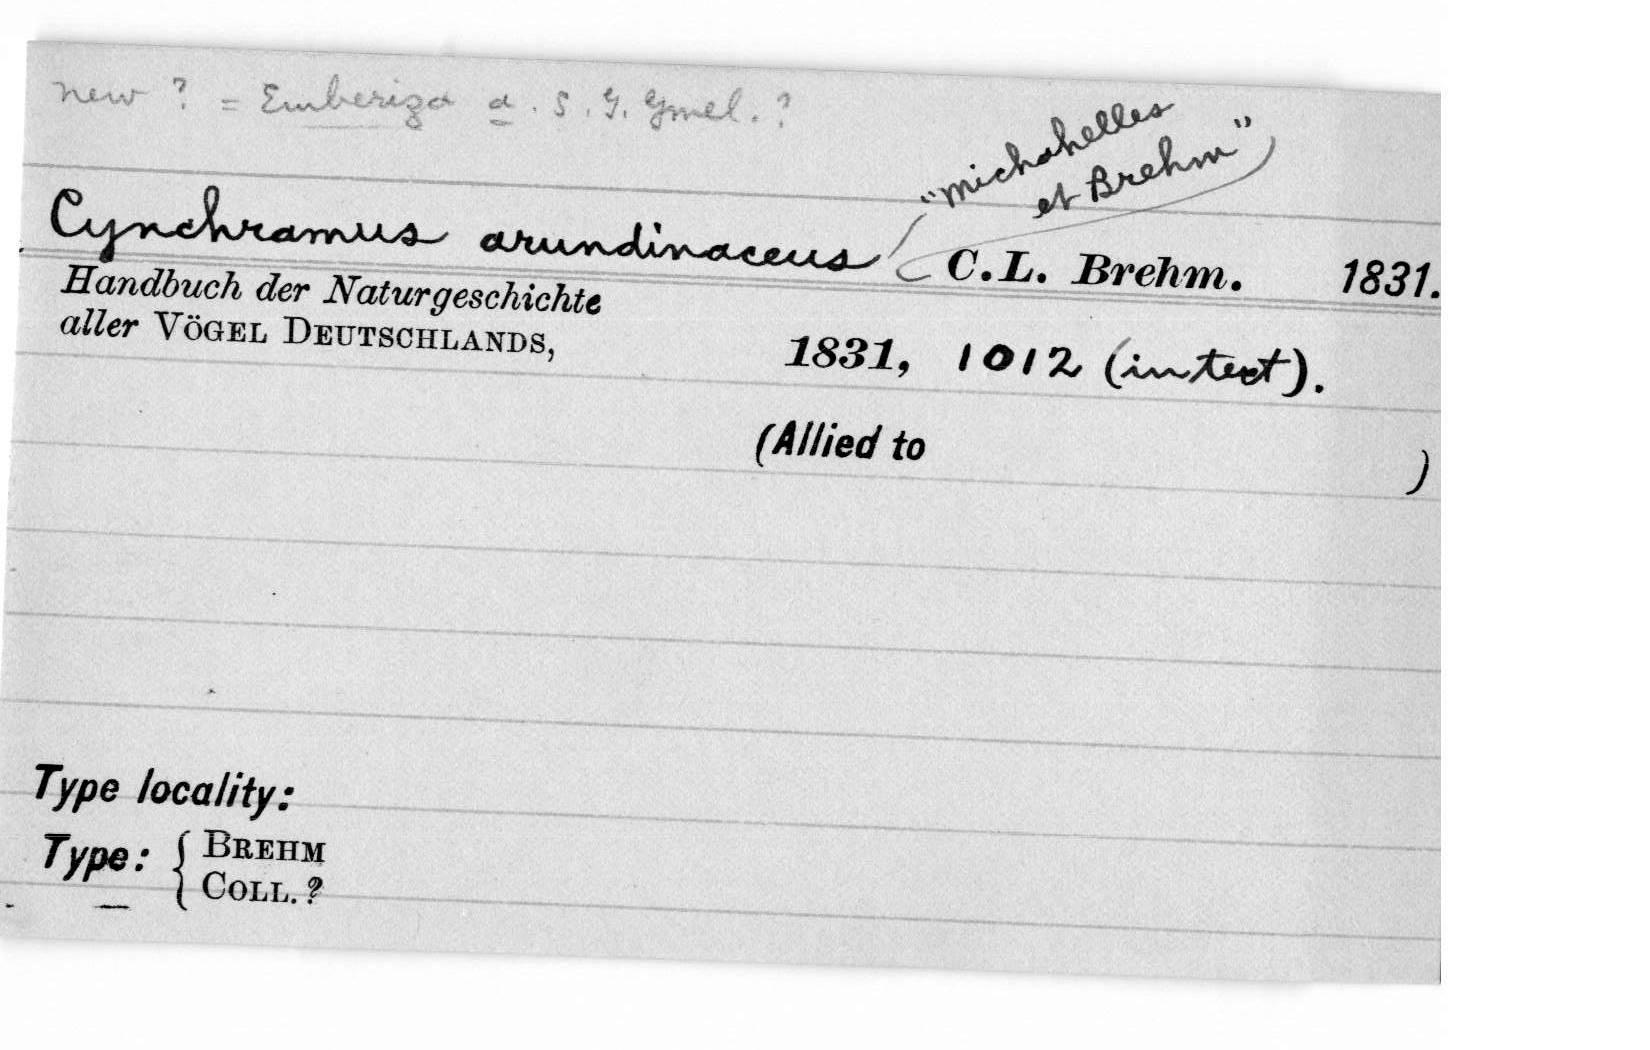 new ? = Emberiza a. S. G. Gmel. ?
"michahelles
et Brehm"
Cynchramus arundinaceus ( C.L. Brehm. 1831.
Handbuch der Naturgeschichte
aller VÖGEL DEUTSCHLANDS,
1831, 1012 (in text).
(Allied to )
Type locality:
Type: { BREHM
COLL. ?